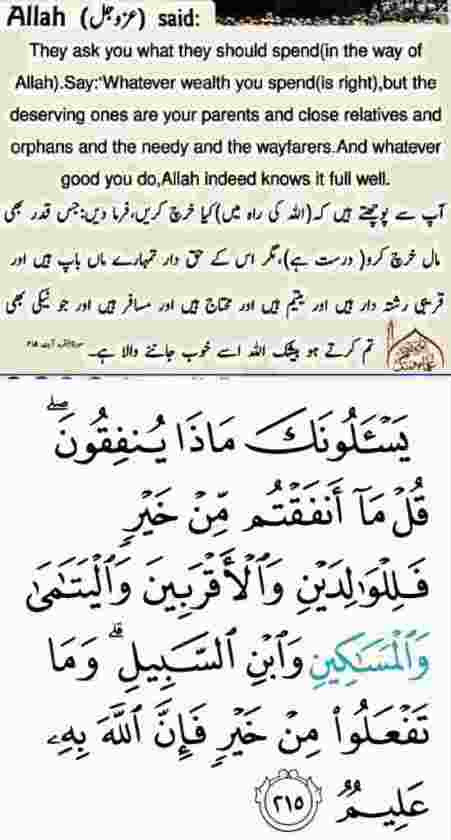 Allah (عزوجل) said:
They ask you what they should spend(in the way of
Allah).Say:‘Whatever wealth you spend(is right),but the
deserving ones are your parents and close relatives and
orphans and the needy and the wayfarers.And whatever
good you do,Allah indeed knows it full well.
آپ سے پوچھتے ہیں کہ(اللہ کی راہ میں)کیا خرچ کریں،فرما دیں:جس قدر بھی
مال خرچ کرو( درست ہے)،مگر اس کے حق دار تمہارے ماں باپ ہیں اور
قریبی رشتہ دار ہیں اور یتیم ہیں اور محتاج ہیں اور مسافر ہیں اور جو نیکی بھی
تم کرتے ہو بیشک اللہ اسے خوب جاننے والا ہے۔
يَسْـَٔلُونَكَ مَاذَا يُنفِقُونَ ۖ
قُلْ مَآ أَنفَقْتُم مِّنْ خَيْرٍ
فَلِلْوَٰلِدَيْنِ وَٱلْأَقْرَبِينَ وَٱلْيَتَٰمَىٰ
وَٱلْمَسَٰكِينِ وَٱبْنِ ٱلسَّبِيلِ ۗ وَمَا
تَفْعَلُوا۟ مِنْ خَيْرٍ فَإِنَّ ٱللَّهَ بِهِۦ
عَلِيمٌ ٢١٥